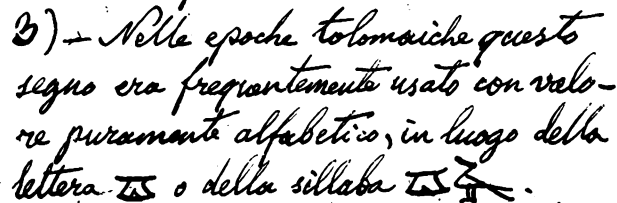 3) - Nelle epoche tolomaiche questo
segno era frequentemente usato con valo-
re puramente alfabetico, in luogo della
lettera 𓎼 o della sillaba 𓎼𓅓.